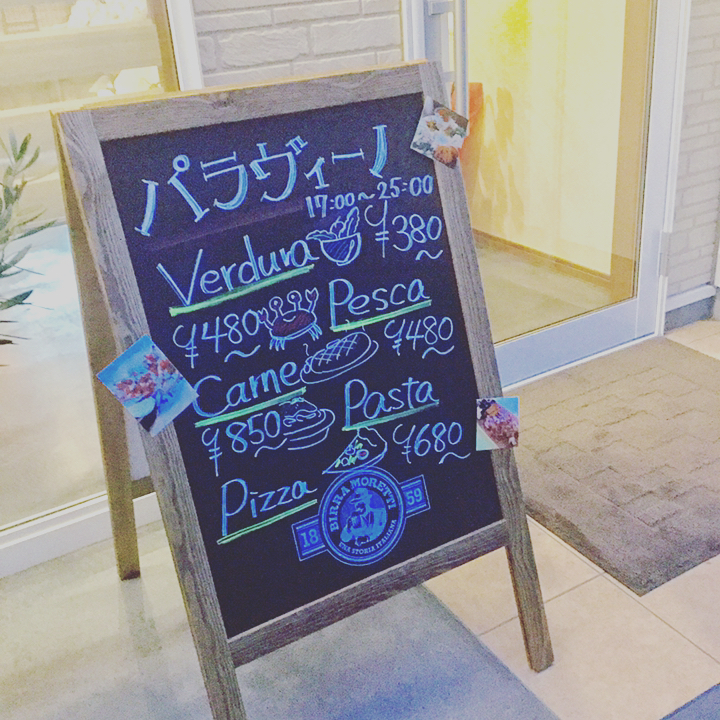 パラヴィーノ
17:00~25:00
Verdura ¥380~
¥480~ Pesca
Carne ¥480~
¥850~ Pasta
Pizza ¥680~
BIRRA MORETTI
18 59
UNA STORIA ITALIANA